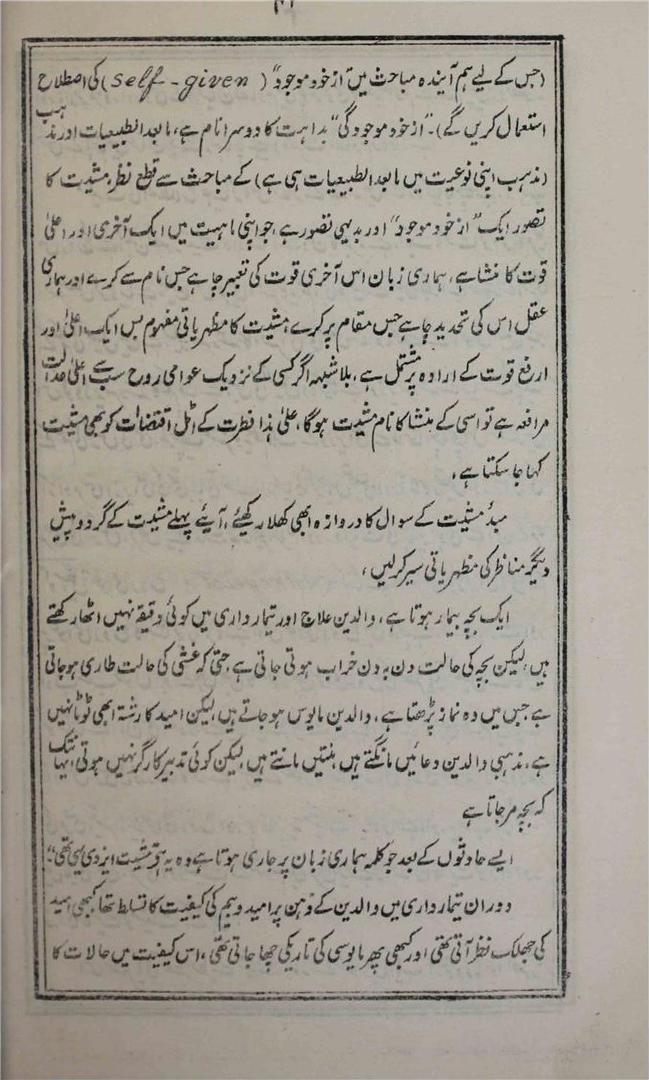 ۴۱
(جس کے لیے ہم آیندہ مباحث میں "از خود موجود" (self - given) کی اصطلاح
استعمال کریں گے)۔ "از خود موجودگی" بداہت کا دوسرا نام ہے، مابعد الطبیعیات اور مذہب
(مذہب اپنی نوعیت میں مابعد الطبیعیات ہی ہے) کے مباحث سے قطع نظر، مشیت کا
تصور ایک "از خود موجود" اور بدیہی تصور ہے، جو اپنی ماہیت میں ایک آخری اور اعلیٰ
قوت کا منشا ہے، ہماری زبان اس آخری قوت کی تعبیر چاہے جس نام سے کرے اور ہماری
عقل اس کی تحدید چاہے جس مقام پر کرے، مشیت کا مظہریاتی مفہوم بس ایک اعلیٰ اور
ارفع قوت کے ارادہ پر مشتمل ہے، بلاشبہہ اگر کسی کے نزدیک عوامی روح سب سے اعلیٰ عدالت
مرافعہ ہے تو اسی کے منشا کا نام مشیت ہوگا، علیٰ ہذا فطرت کے اٹل اقتضات کو بھی مشیت
کہا جا سکتا ہے،
مبدٴ مشیت کے سوال کا دروازہ ابھی کھلا رکھیئے، آیئے پہلے مشیت کے گرد و پیش
دیگر مناظر کی مظہریاتی سیر کر لیں،
ایک بچہ بیمار ہوتا ہے، والدین علاج اور تیمارداری میں کوئی دقیقہ نہیں اٹھا رکھتے
ہیں، لیکن بچہ کی حالت دن بہ دن خراب ہوتی جاتی ہے، حتیٰ کہ غشی کی حالت طاری ہو جاتی
ہے جس میں وہ نماز پڑھتا ہے، والدین مایوس ہو جاتے ہیں، لیکن امید کا رشتہ ابھی ٹوٹا نہیں
ہے، مذہبی والدین دعائیں مانگتے ہیں، منتیں مانتے ہیں، لیکن کوئی تدبیر کارگر نہیں ہوتی، یہانتک
کہ بچہ مر جاتا ہے
ایسے حادثوں کے بعد جو کلمہ ہماری زبان پر جاری ہوتا ہے وہ یہ ہے "مشیت ایزدی یہی تھی"،
دوران تیمارداری میں والدین کے ذہن پر امید و بیم کی کیفیت کا تسلط تھا، کبھی امید
کی جھلک نظر آتی تھی اور کبھی پھر مایوسی کی تاریکی چھا جاتی تھی، اس کیفیت میں حالات کا